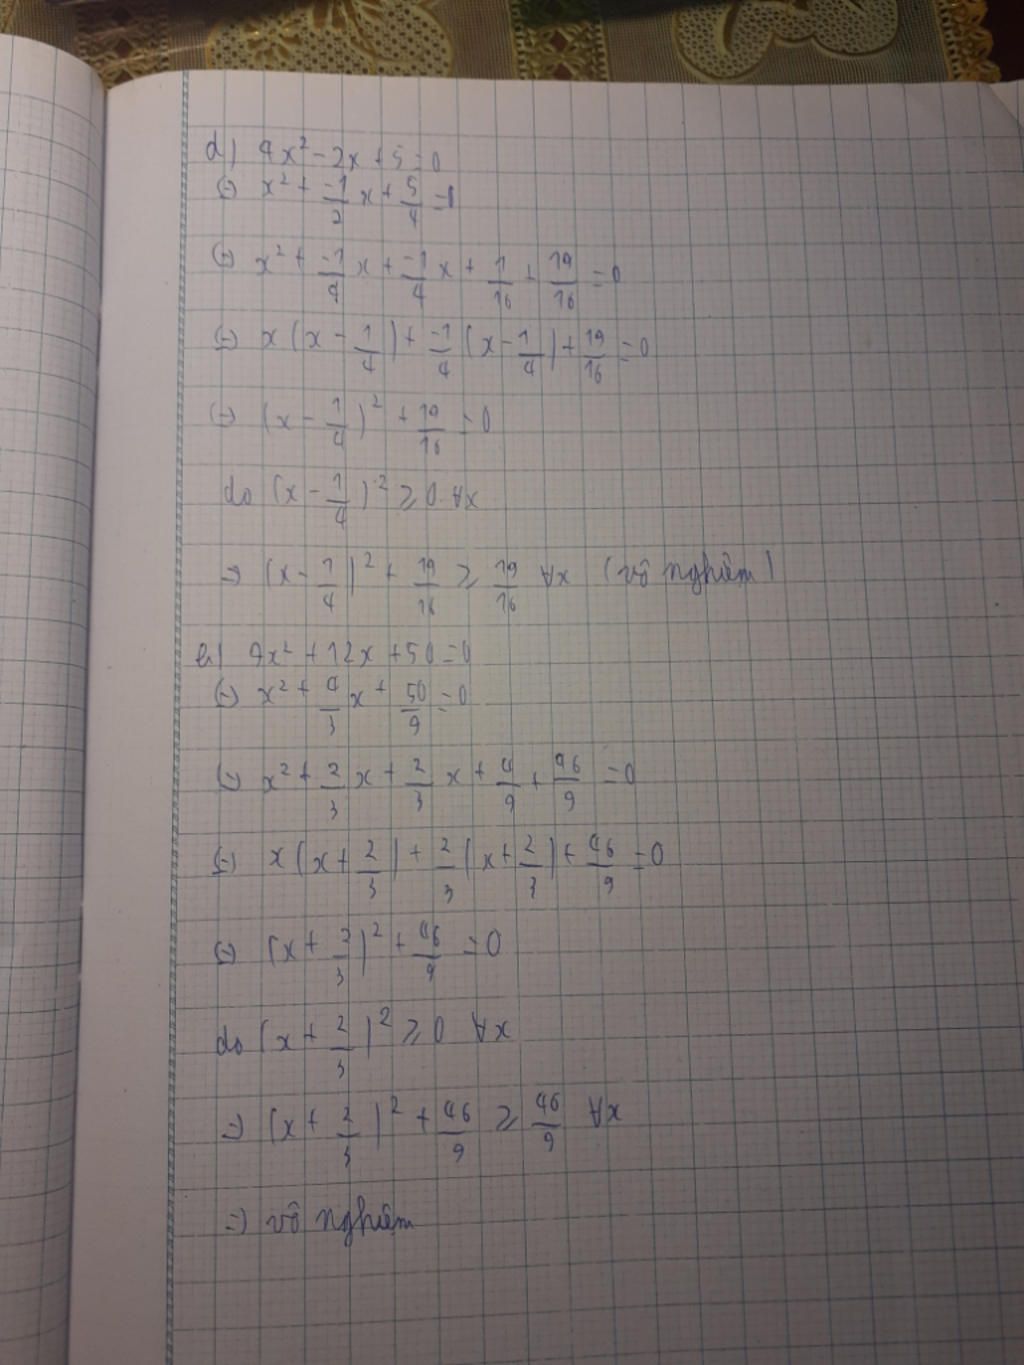 d) 4x² - 2x + 5 = 0
(=) x² + -1/2 x + 5/4 = 0
(=) x² + -1/4 x + -1/4 x + 1/16 + 19/16 = 0
(=) x(x - 1/4) + -1/4 (x - 1/4) + 19/16 = 0
(=) (x - 1/4)² + 19/16 = 0
do (x - 1/4)² ≥ 0 ∀x
=) (x - 1/4)² + 19/16 ≥ 19/16 ∀x (vô nghiệm)
e) 9x² + 12x + 50 = 0
(=) x² + 4/3 x + 50/9 = 0
(=) x² + 2/3 x + 2/3 x + 4/9 + 46/9 = 0
(=) x(x + 2/3) + 2/3 (x + 2/3) + 46/9 = 0
(=) (x + 2/3)² + 46/9 = 0
do (x + 2/3)² ≥ 0 ∀x
=) (x + 2/3)² + 46/9 ≥ 46/9 ∀x
=) vô nghiệm